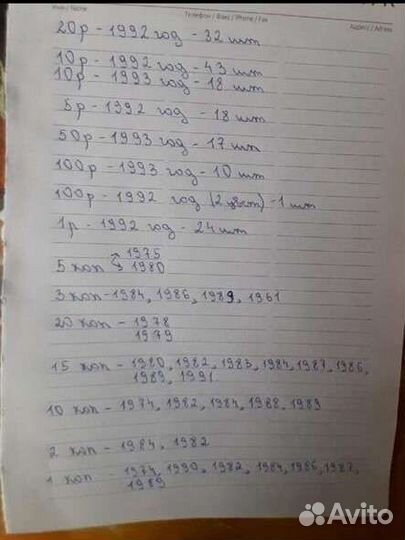 Имя / Name
Телефон / Факс / Phone / Fax
Адрес / Address
20р - 1992 год - 32 шт
10р - 1992 год - 43 шт
10р - 1993 год - 18 шт
5р - 1992 год - 18 шт
50р - 1993 год - 17 шт
100р - 1993 год - 10 шт
100р - 1992 год (2 цвет) - 1 шт
1р - 1992 год - 24 шт
5 коп 1975
1980
3 коп - 1984, 1986, 1989, 1961
20 коп - 1978
1979
15 коп - 1980, 1982, 1983, 1984, 1987, 1986,
1989, 1991
10 коп - 1974, 1982, 1984, 1988, 1989
2 коп - 1984, 1982
1 коп - 1974, 1990, 1982, 1984, 1986, 1987,
1989
Avito